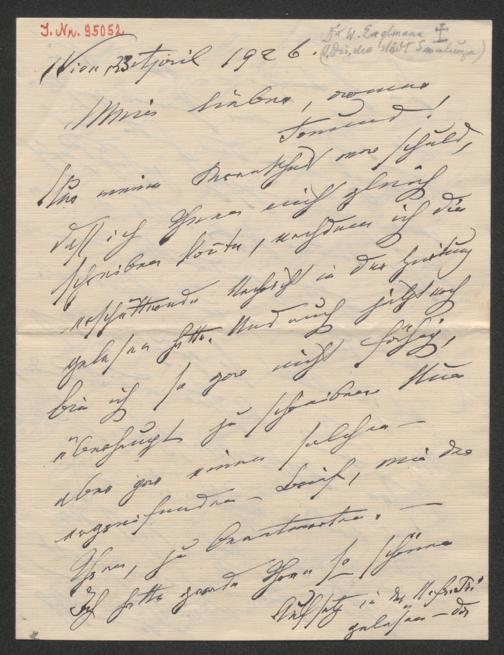 I.N. 95052
Dr W. Englmann †
(Dir. der städt. Sammlungen)
Wien, 23 April 1926.
Mein lieber, armer
Freund!
Nur meine Krankheit war schuld,
daß ich Ihnen nicht gleich
schreiben konnte, nachdem ich die
erschütternde Nachricht in der Zeitung
gelesen hatte. Und auch jetzt noch
bin ich so gar nicht fähig,
überhaupt zu schreiben. Nun
aber gar einen solchen –
ergreifenden – Brief, wie der
Ihre, zu beantworten. –
Ich hatte gerade Ihren so schönen
Aufsatz in der
gelesen – da